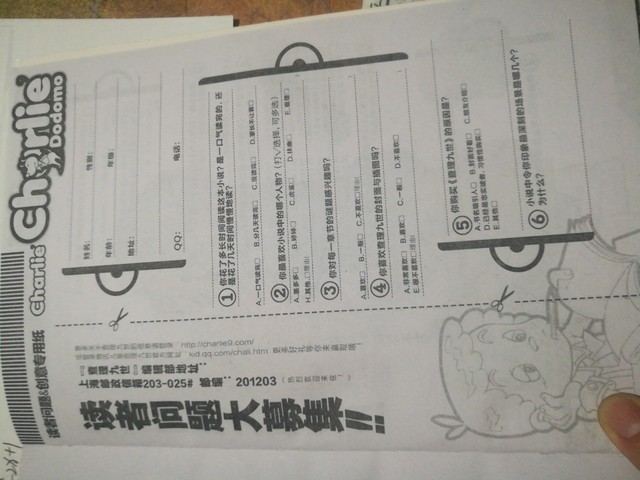 读者问题&创意专用纸
Charlie'
Charlie'
Dodomo
姓名:
性别:
年龄:
年级:
地址:
QQ:
电话:
①你花了多长时间阅读这本小说?是一口气读完的,还
是花了几天时间慢慢地读?
A.一口气读完□ B.分几天读完□ C.没读完□ D.家长不让看□
②你最喜欢小说中的哪个人物?(打√选择,可多选)
A.墨多多□ B.婷婷□ C.虎鲨□ D.扶幽□ E.查理□
H.其他
③你对每一章节的谜题感兴趣吗?
A.喜欢□ B.一般□ C.不喜欢□ (理由)
④你喜欢查理九世的封面与插图吗?
A.非常喜欢□ B.喜欢□ C.一般□ D.不喜欢□
E.很不喜欢□ (理由)
⑤你购买《查理九世》的原因是?
A.书名吸引人□ B.封面好看□ C.朋友介绍□
E.其他□
⑥小说中令你印象最深刻的场景是哪几个?
为什么?
读者问题大募集!!
上海邮政信箱203-025# 邮编:201203
《查理九世》编辑部地址:
kid.qq.com/chali.htm
http://charlie9.com/